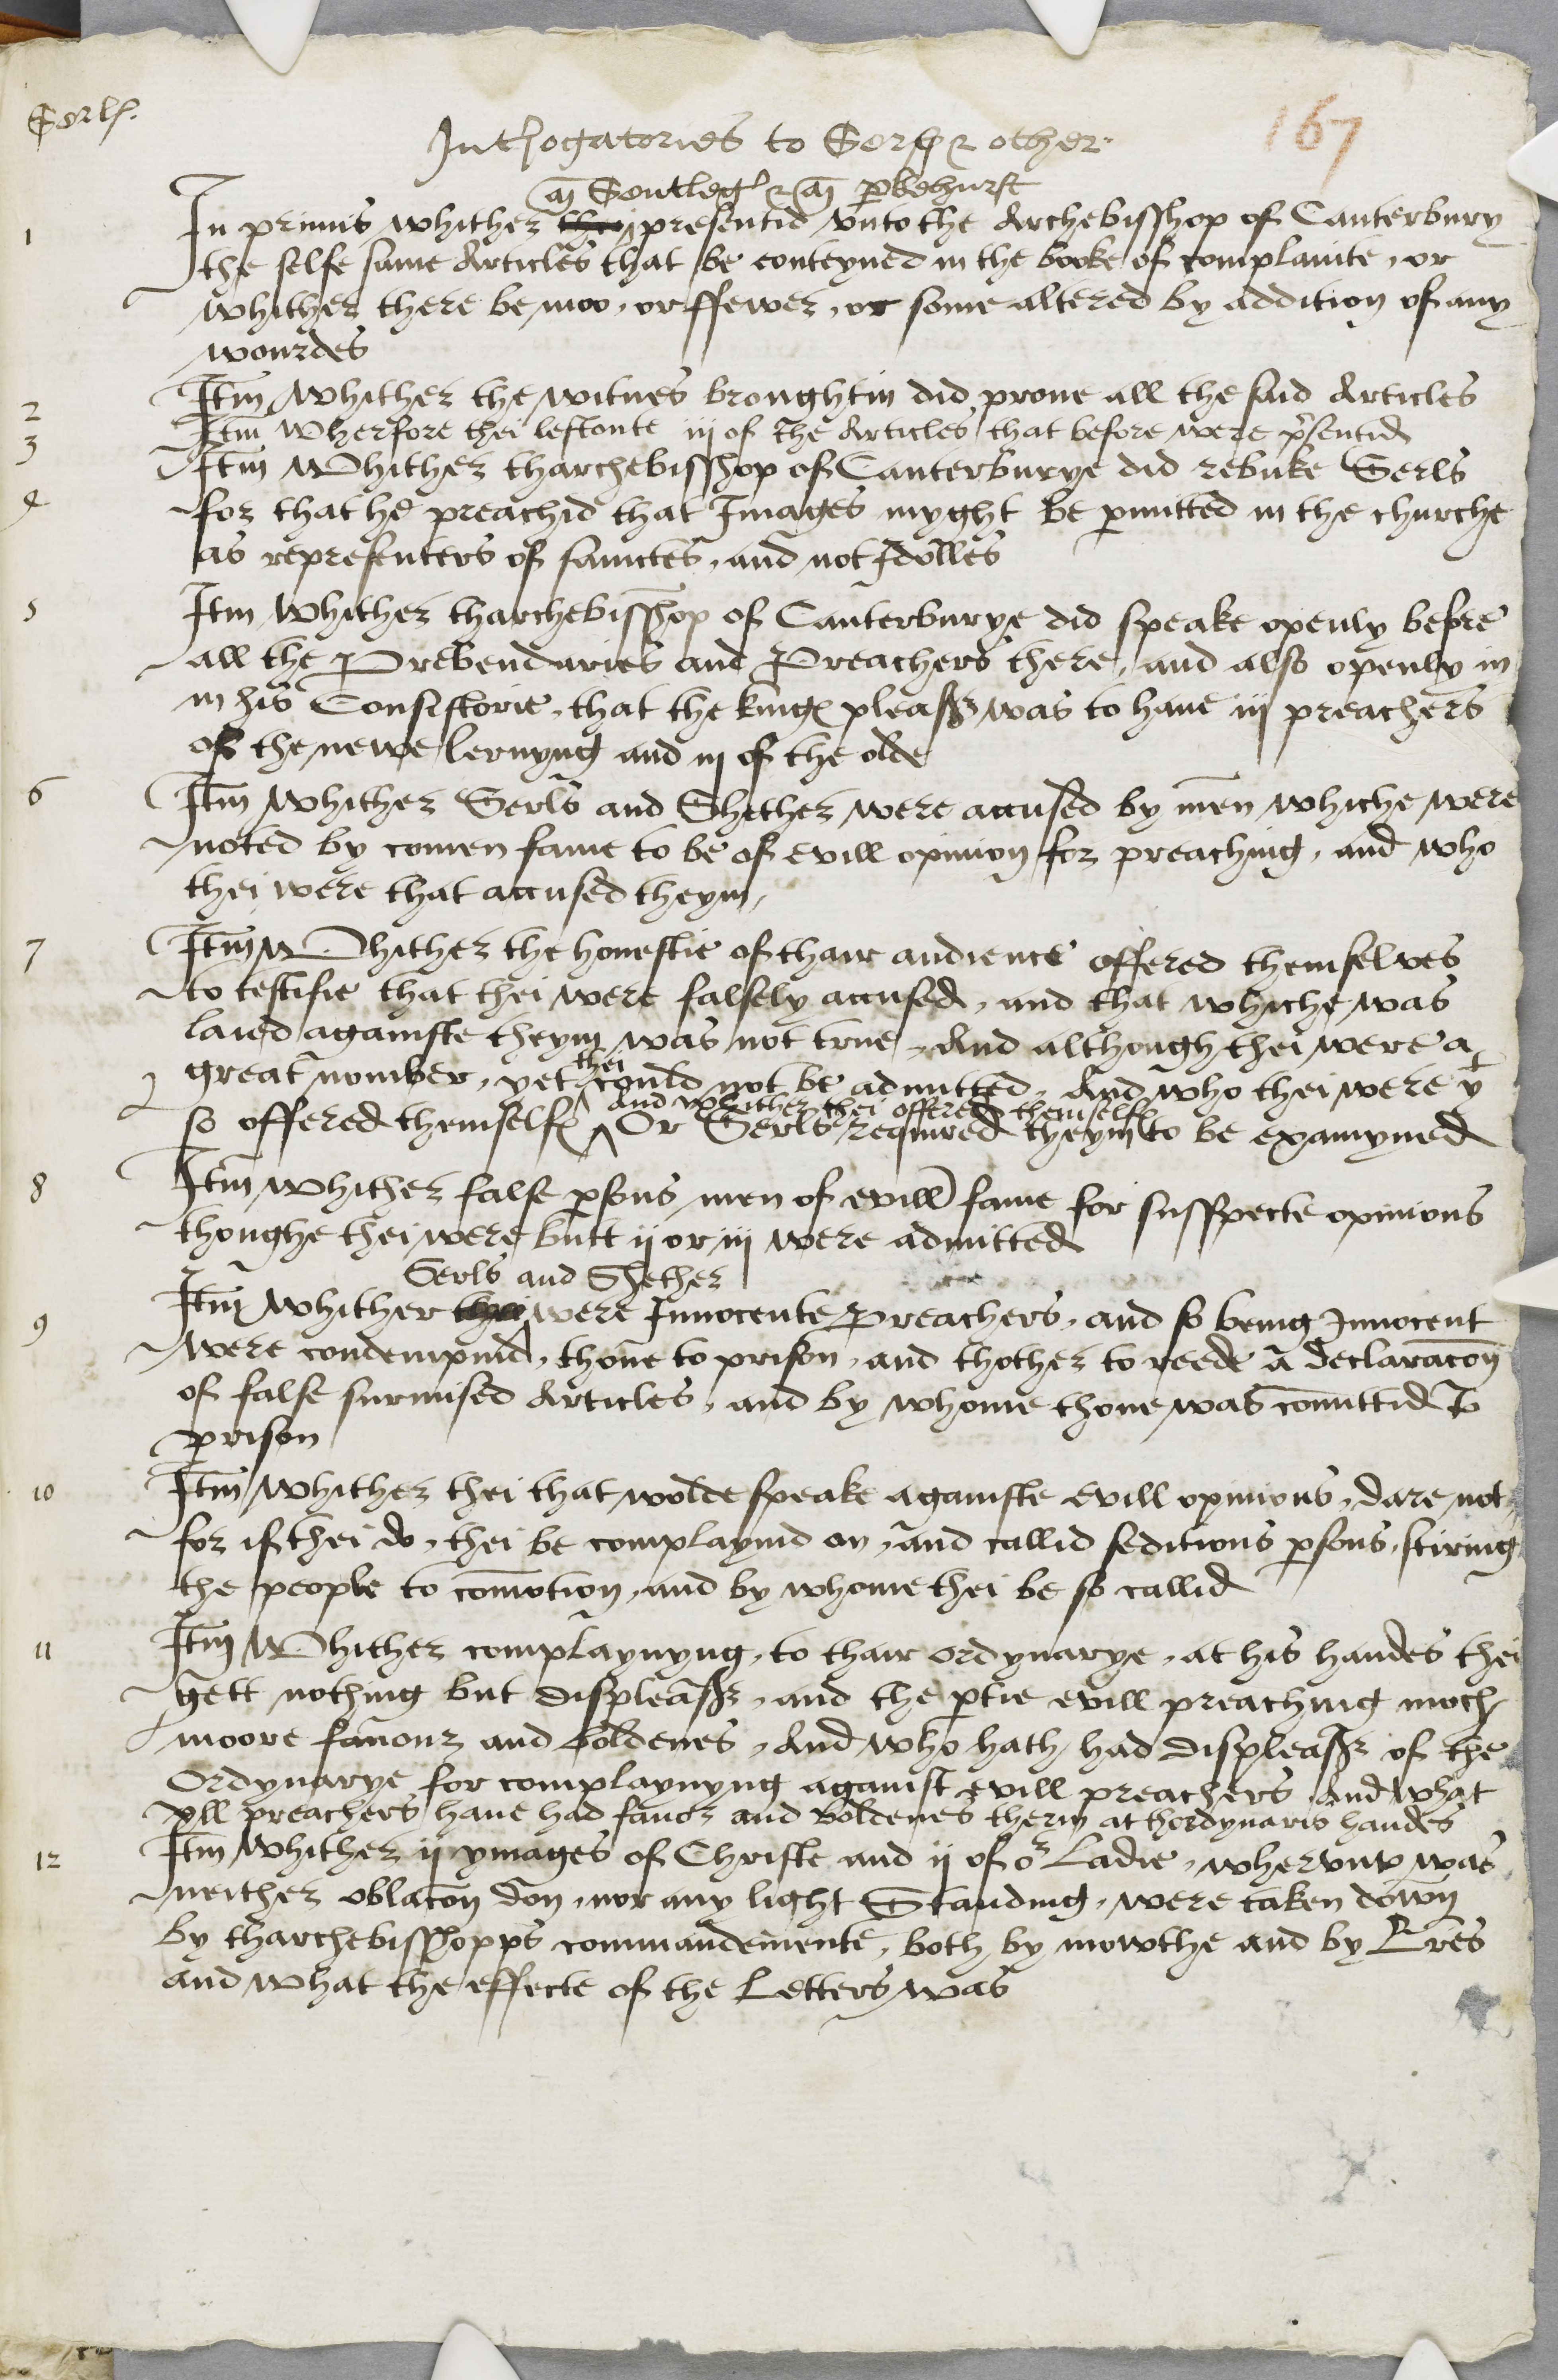 Serls.
167
Interrogatories to Serls & other
Mr Gentleg & Mr parkehurst
1 In primis whither thei presentid vnto the Archebisshop of Canterbury
the selfe same Articles that be conteyned in the booke of complainte, or
whither there be moo, or ffewer, or some altered by addition of any
wourdes
2 Itm whither the witnes brought in did prove all the said Articles
3 Itm wherfore thei left oute iij of the Articles that before were p̃sentid
4 Itm Whither tharchebisshop of Canterburye did rebuke Serls
for that he preachid that Images myght be pmitted in the churche
as representers of sainctes, and not Idolles
5 Itm whither tharchebisshop of Canterburye did speake openly before
all the Prebendaries and Preachers there, and also openly in
in his Consistorie, that the kinges pleasr was to have iij preachers
of the newe lernyng and iij of the olde
6 Itm whither Serls and Shether were accused by men whiche were
noted by comen fame to be of evill opinion for preaching, and who
thei were that accused theym,
7 Itm Whither the honestie of thair audience offered themselves
to testifie that thei were falsely accused, and that whiche was
laied againste theym was not true, And although thei were a
great nomber, yet thei could not be admitted, And who thei were yt
And whither thei offered themselfes
so offered themselfes Or Serls required theym to be examyned
8 Itm whither false psons men of evill fame for susspecte opinions
thoughe thei were but ij or iij were admitted
Serls and Shether
9 Itm whither thei were Innocente Preachers, and so being Innocent
were condempnid, thone to prison, and thother to reede a declaracon
of false surmised Articles, and by whome thone was comittid to
prison
10 Itm whither thei that wolde speake againste evill opinions, dare not
for if thei do, thei be complaynid on, and callid seditious psons, stiring
the people to comotion, and by whome thei be so callid
11 Itm Whither complaynyng, to thair ordynarye, at his handes thei
gett nothing but displeasr, and the ptie evill preaching moch
moore favour and boldenes, And who hath had displeasr of the
Ordynarye for complaynyng against evill preachers And what
yll preachers have had favor and boldenes therin at thordynaris handes
12 Itm whither ij ymages of Christe and ij of or Ladie, whervnto was
neither oblacon don, nor any light Standing, were taken down
by tharchebisshopps commaundemente, both by mowthe and by Lres
and what the effecte of the Letters was